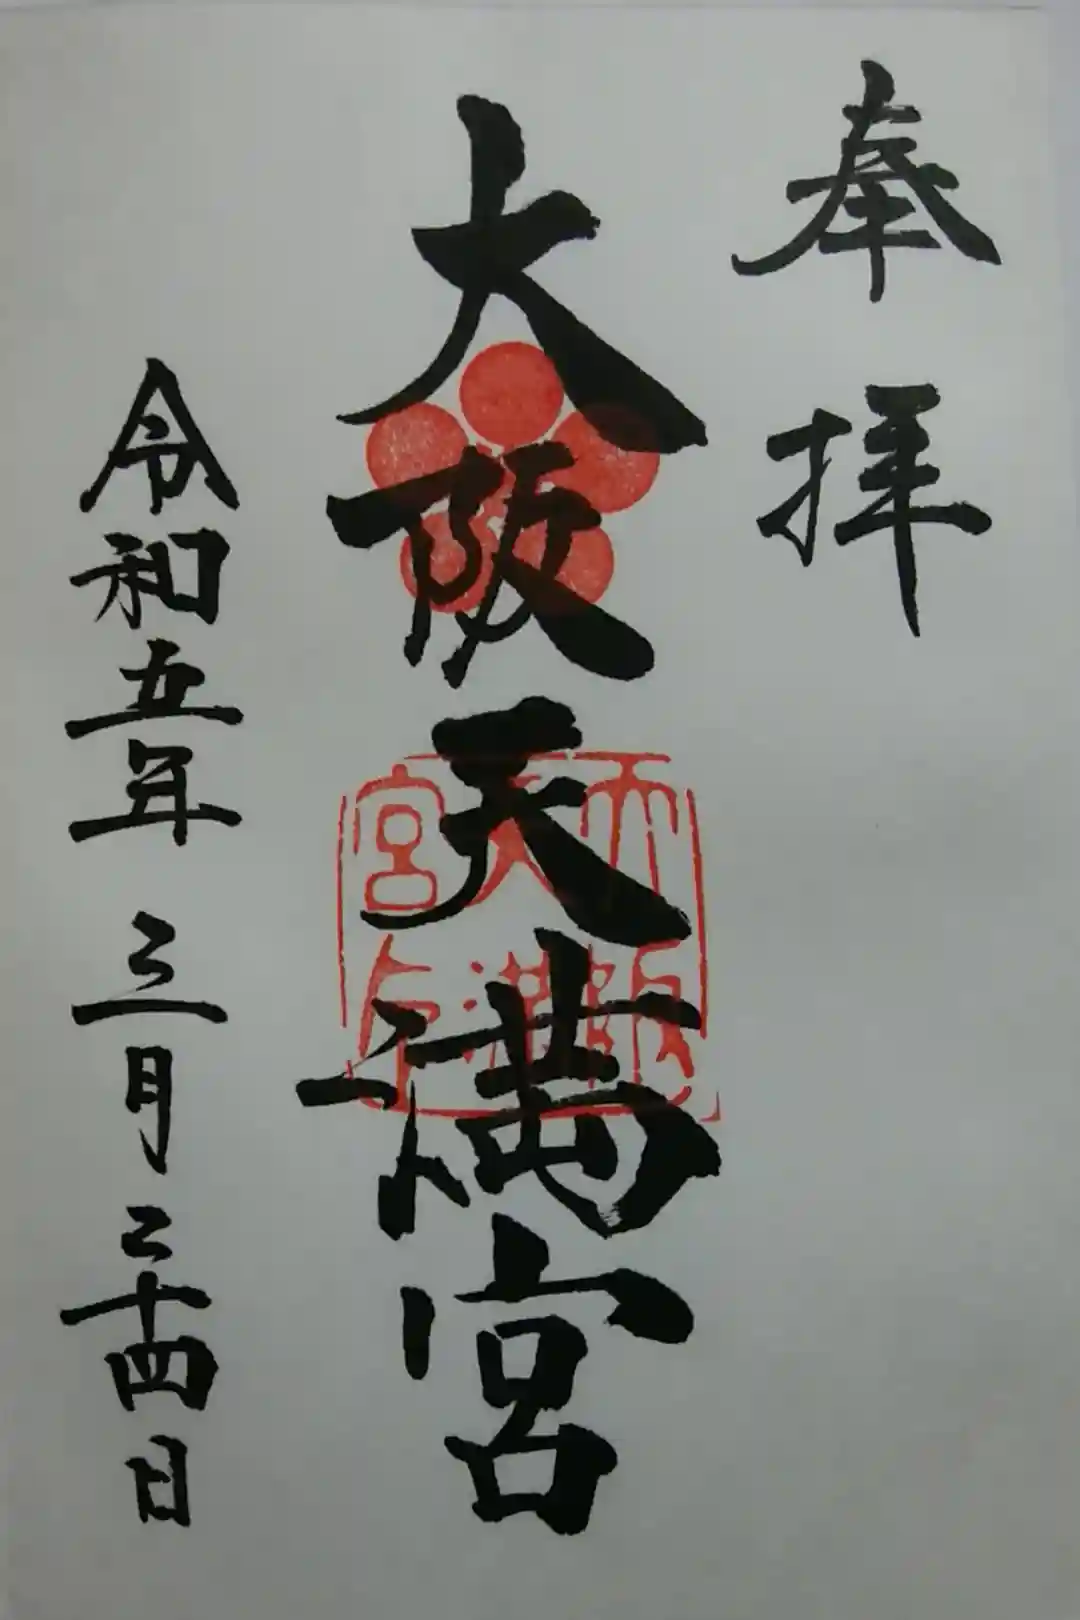 奉拝
大阪天満宮
大阪天満宮印
令和五年三月二十四日